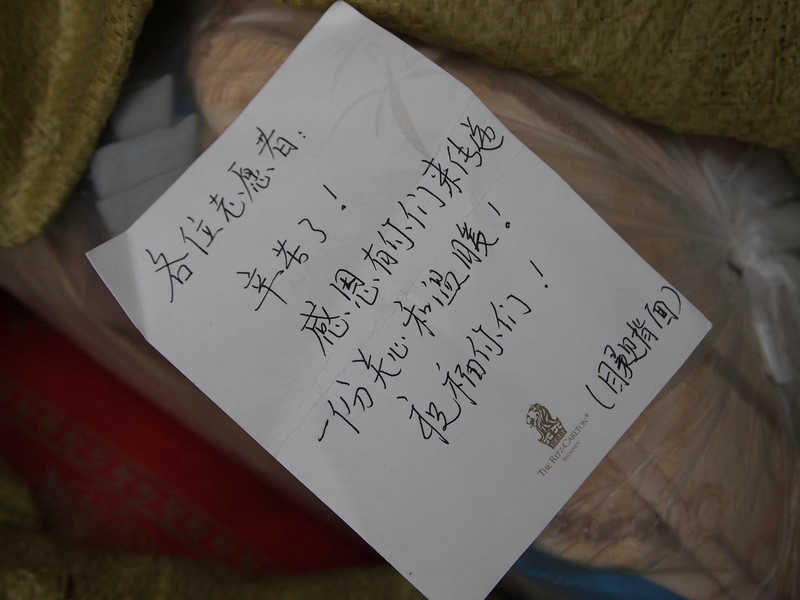 各位志愿者:
辛苦了!
感恩有你们来传递
一份关心和温暖!
祝福你们!
(目录背面)
THE RITZ-CARLTON®